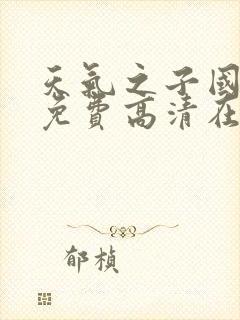 天氣之子國
免費高清在
郁楨